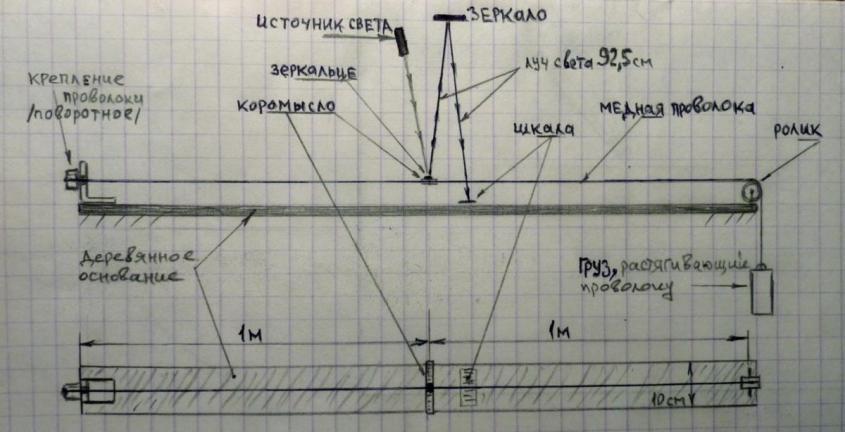 ИСТОЧНИК СВЕТА
ЗЕРКАЛО
зеркальце
луч света 92,5см
крепление
проволоки
/поворотное/
коромысло
шкала
медная проволока
ролик
Деревянное
основание
груз, растягивающий
проволоку
1м
1м
10см